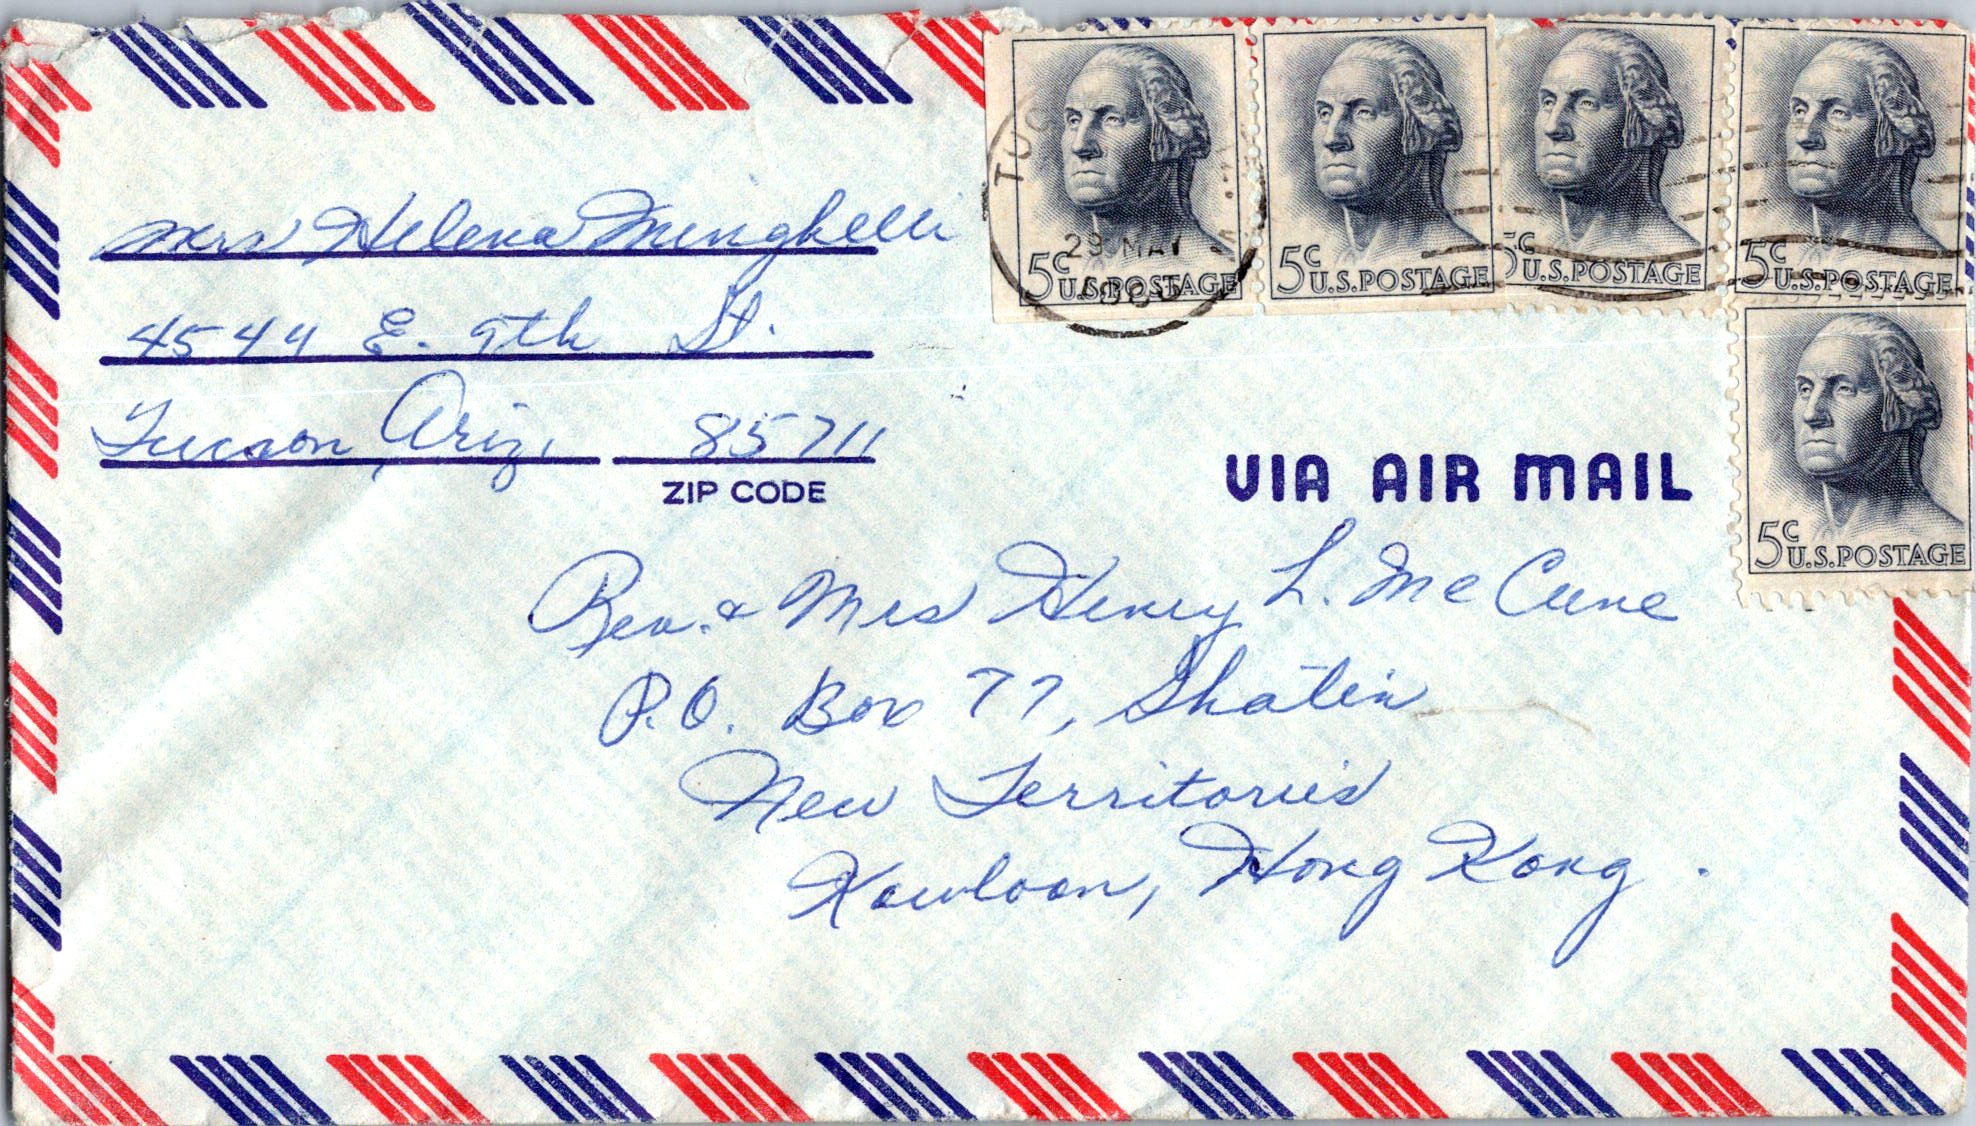 Mrs Helena Minghelli
4544 E. 9th St.
Tucson, Ariz. 85711
ZIP CODE
TUC
29 MAY
5c U.S. POSTAGE
5c U.S. POSTAGE
5c U.S. POSTAGE
5c U.S. POSTAGE
5c U.S. POSTAGE
VIA AIR MAIL
Rev. & Mrs Henry L. McCune
P.O. Box 77, Shatin
New Territories
Kowloon, Hong Kong.